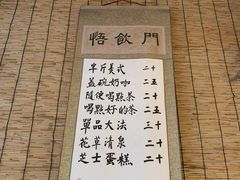 悟飲門
半斤美式 二十
蓋碗奶咖 二十五
隨便喝點茶 二十
喝點好的茶 二十五
單品大法 三十
花草清泉 二十
芝士蛋糕 二十